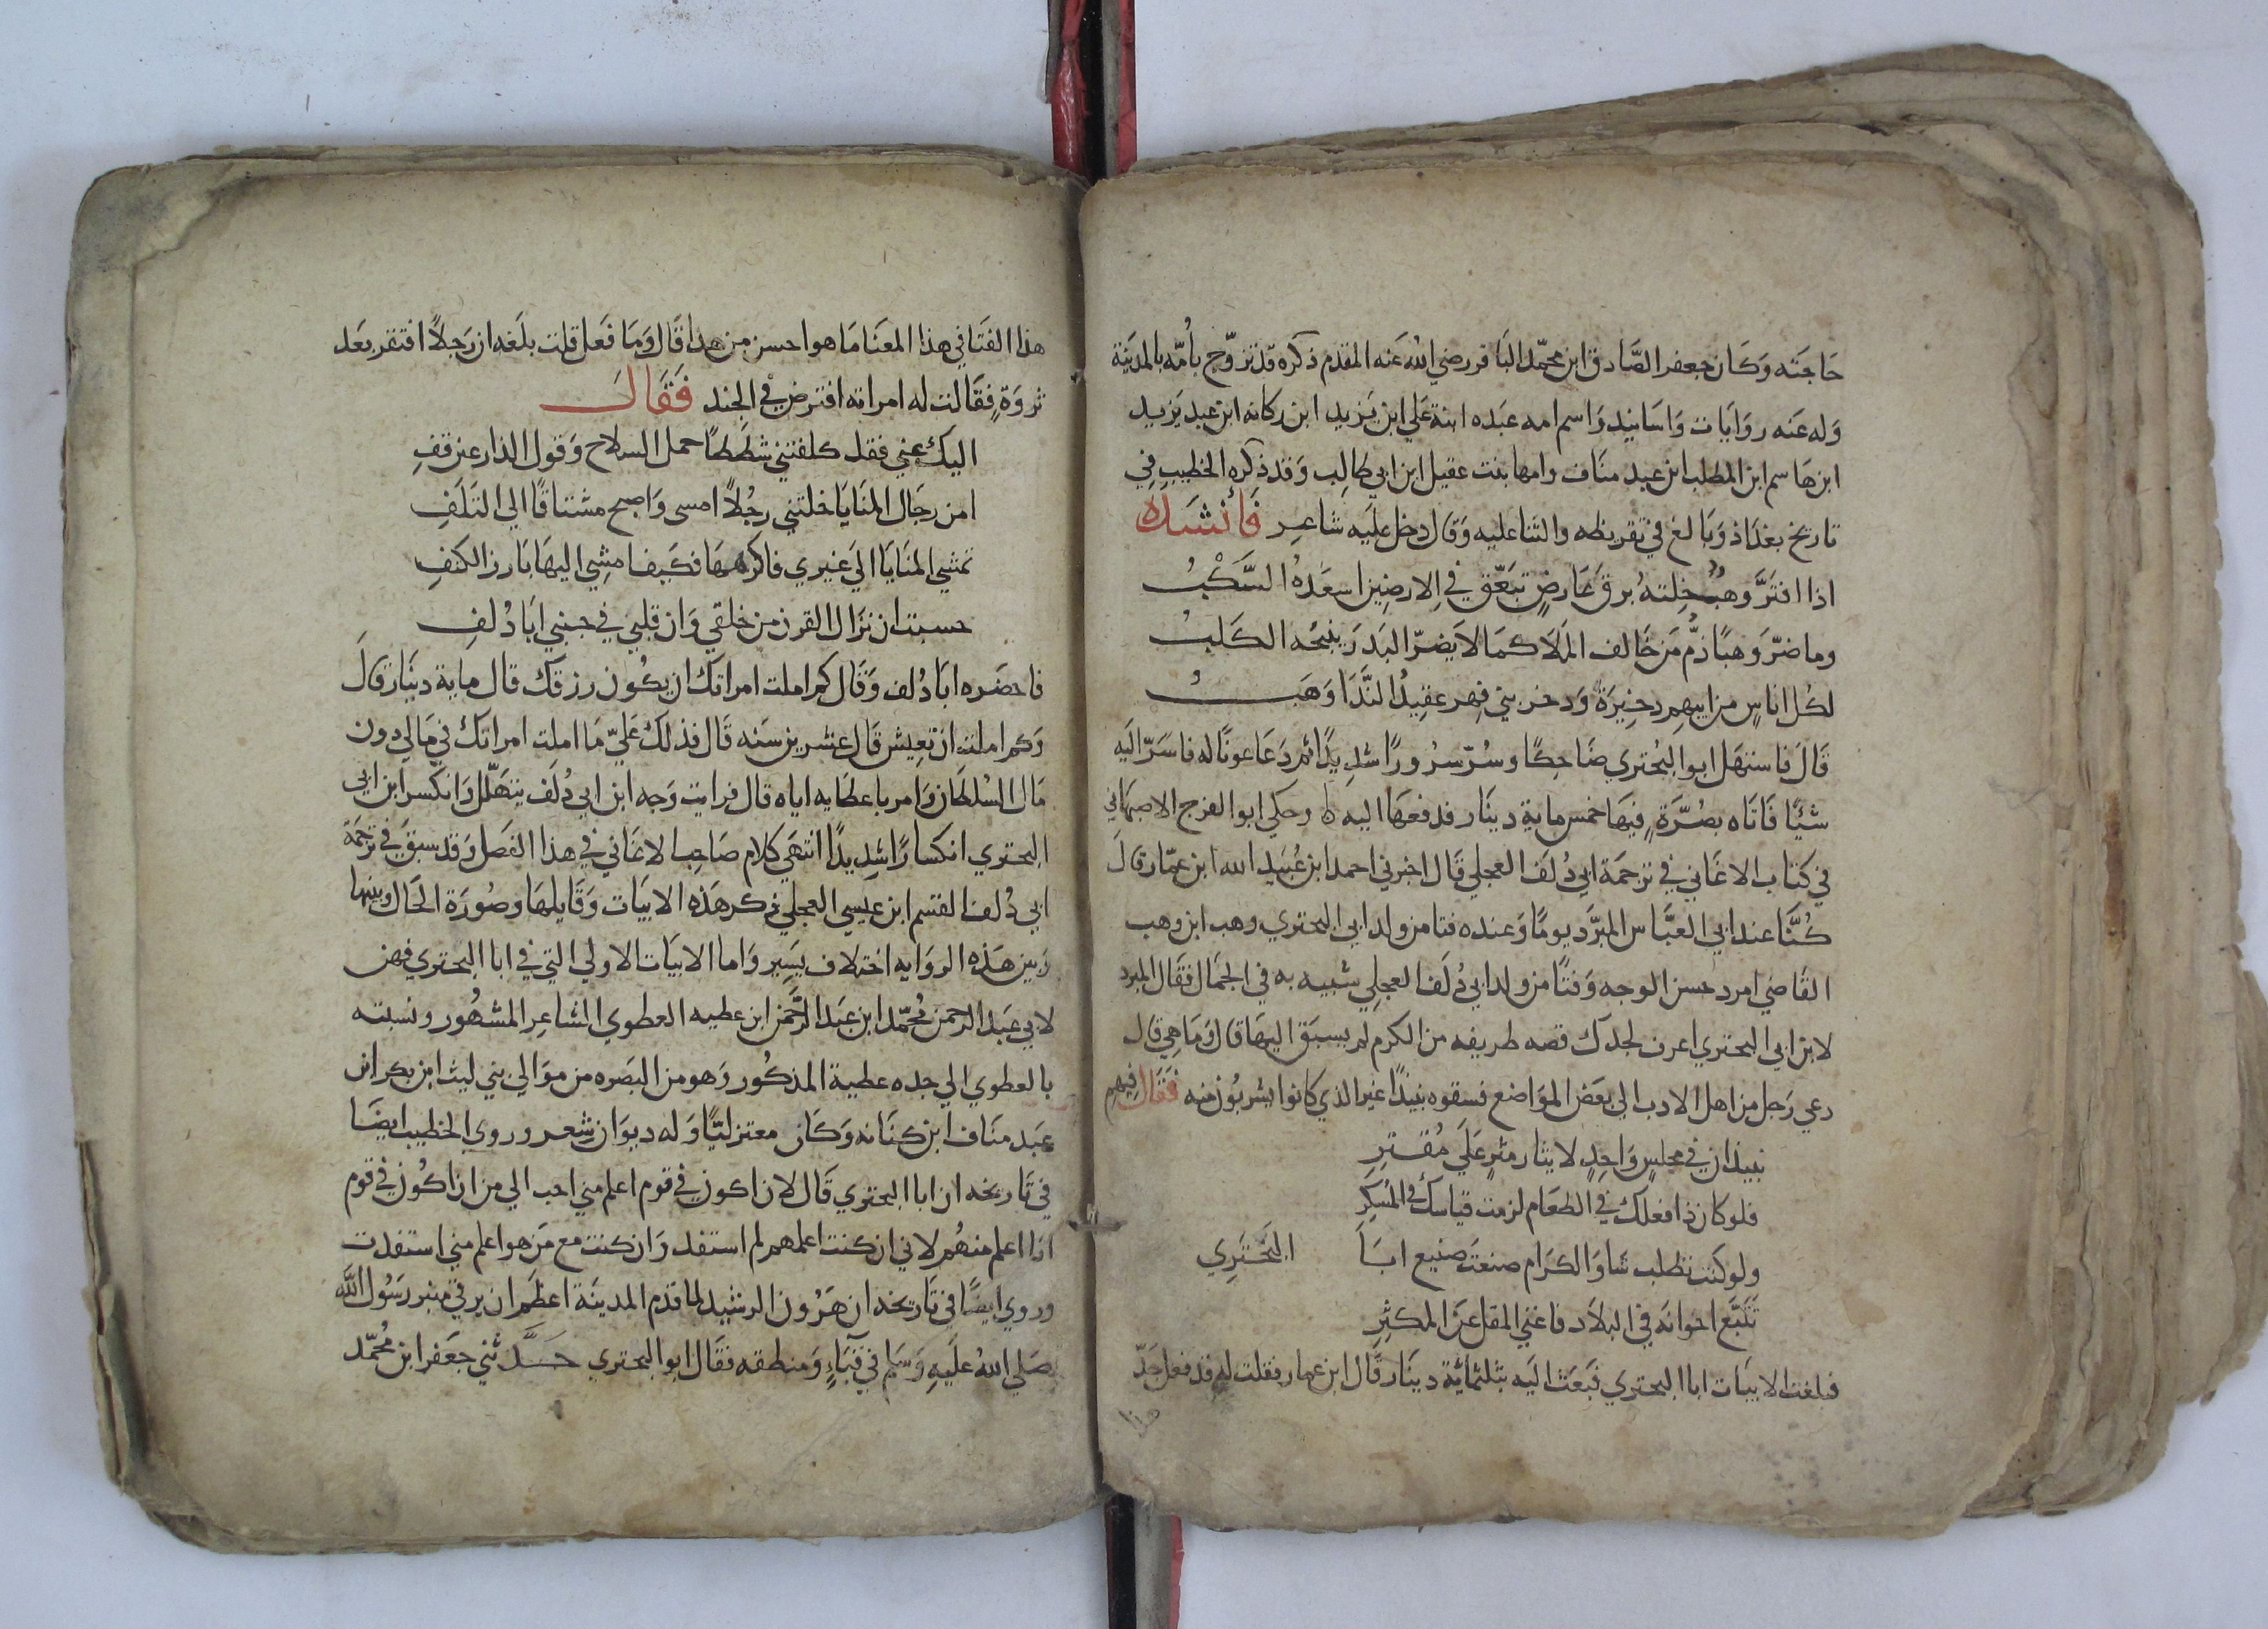 حَاجَته وَكَان جعفر الصَّادق ابن محمّد الباقر رضي الله عَنه المقدم ذكره قد تزوّج بأمّه بالمدينة
وَله عَنه روَايَات وَاسَانيد وَاسم امه عبَده ابنة عَلي ابن يَزيد ابن ركانه ابن عبد يَزيد
ابن هَاسم ابن المطلب ابن عبد منَاف وامها بنت عقيل ابن ابي طالِب وَقد ذكره الخطيب فِي
تاريخ بغدَاذ وَبَالغ في تقريظه والثنا عليه وَقال دخل علَيه شاعِر فَأنشَده
اذا افتَرَّ وَهبٌ خِلتهُ برق عَارضٍ تبَعّق في الارضِين اسعَدهُ السَّكْبُ
وما ضرّ وَهبًا ذمُّ مَن خَالف المَلَا كمَا لا يَضرّ البَدرَ ينبحُه الكَلبُ
لكُل اناسٍ من ابيهِم ذخِيرَةٌ وَذخر بني فِهر عقِيدُ النَّدَا وَهَبُ
قَالَ فاستهَل ابو البُحْتري ضَاحِكًا وسُرّ سرُورًا شدِيدًا ثم دَعَا عونًا له فاسَرّ الَيه
شيًا فَاتَاه بصُرَّةٍ فيهَا خمس ماية دينَار فدفعهَا اليه ه وحكى ابو الفرج الاصبهَاني
في كتاب الاغَاني في ترجمَة ابي دُلَف العجلي قَال اخبرني احمد ابن عُبَيد الله ابن عمّار قالَ
كُنَّا عند ابي العبَّاس المبرَّد يومًا وَعنده فتا من ولد ابي البحتري وهب ابن وهب
القَاضي امرد حسن الوجه وَفتًا من ولد ابي دُلَف العجلي شبيه به في الجمَال فقَال المبرد
لابن ابي البحتري اعرف لجدك قصه طريفه من الكرم لم يسبَق اليهَا قال وَمَا هي قال
دعي رَجل من اهل الادب الى بعَض الموَاضع فسقوه نبيذًا غير الذي كانوا يشربُون منه فقَال فِيهم
نبيذان في مجلسٍ وَاحِدٍ لايثار مثرٍ عَلَى مُقتِرِ
فلو كان ذا فعلك في الطعَام لزمت قياسك في المُسْكِرِ
ولو كنت تطلب شَاوَ الكرَام صنعتَ صنيع ابَا البَحْتَرِي
تَتَبَّع اخوانَه في البلَاد فاغني المقل عَن المكثِرِ
فبلغت الابيَات ابا البحتري فبَعَث الَيه بثلثمائَة دينَار قَال ابن عمار فقلت له قد فعل جَدّ
هذا
هذا الفتَا في هذا المعنَا مَا هو احسن مِن هذا قَال وَمَا فَعل قلت بلَغه ان رَجلاً افتقر بعَد
ثروَةٍ فقَالت له امراته افترض في الجند فَقَالَ
اليك عني فقد كلفتني شطَطًا حمل السلاح وَقول الذارعين قفِ
امن رجَال المنَايَا خلتني رجُلاً امسى وَاصبح مشتاقًا الى التَلَفِ
تمشي المنَايَا الى غيري فاكرههَا فكَيف امشِي اليهَا بَارز الكتفِ
حسبت ان نزَال القرن من خلقي وَان قلبي في جنبي ابَا دُلفِ
فاحضَره ابَا دُلف وَقَال كم املت امراتك ان يكُون رزقك قال ماية دينَار قالَ
وَكم املت ان تعِيش قَال عشرين سَنه قَال فذلك عَليّ مَا املت امراتك في مَالي دون
مَال السُلطَان وَامر باعطَايه اياه قال فرايت وَجه ابن ابي دُلَف يتهَلّل وَانكسر ابن ابي
البحتري انكسَارًا شدِيدًا انتهَى كلام صَاحِب الاغَاني في هذا الفَصل وَقد سبَق في ترجمَة
ابي دُلف القسم ابن عيسي العجلي ذكر هَذه الابيَات وَقَايلهَا وصُورَة الحَال وبينها
وَبين هَذه الروَايه اختلاف يسَير وَاما الابيَات الاولى التي في ابا البحتري فهن
لابي عَبد الرحمن مُحمّد ابن عَبَد الرَّحمَن ابن عطيه العطوي الشاعِر المشهُور ونسبته
بالعطوي الي جده عطية المذكُور وَهو من البَصره من موَالي بني ليث ابن بكر ابن
عبَد منَاف ابن كِنَانه وَكَان معتزليًّا وَله ديوَان شعر وروى الخطيب ايضًا
في تَاريخه ان ابا البحتري قَال لان اكون في قوم اعلم مني احب الي من ان اكُون في قوم
انا اعلم منهُم لاني ان كنت اعلمهم لم استفد وَان كنت مع مَن هو اعلم مني استفدت
وروي ايضًا في تَاريخه ان هَرُون الرشيد لما قدم المدينَة اعظَم ان يرقى منبر رَسُول اللَّه
صَلي اللهُ علَيهِ وَسَلم في قبَآءٍ وَمنطقه فقَال ابو البحتري حَدَّثني جعَفر ابن مُحمّد